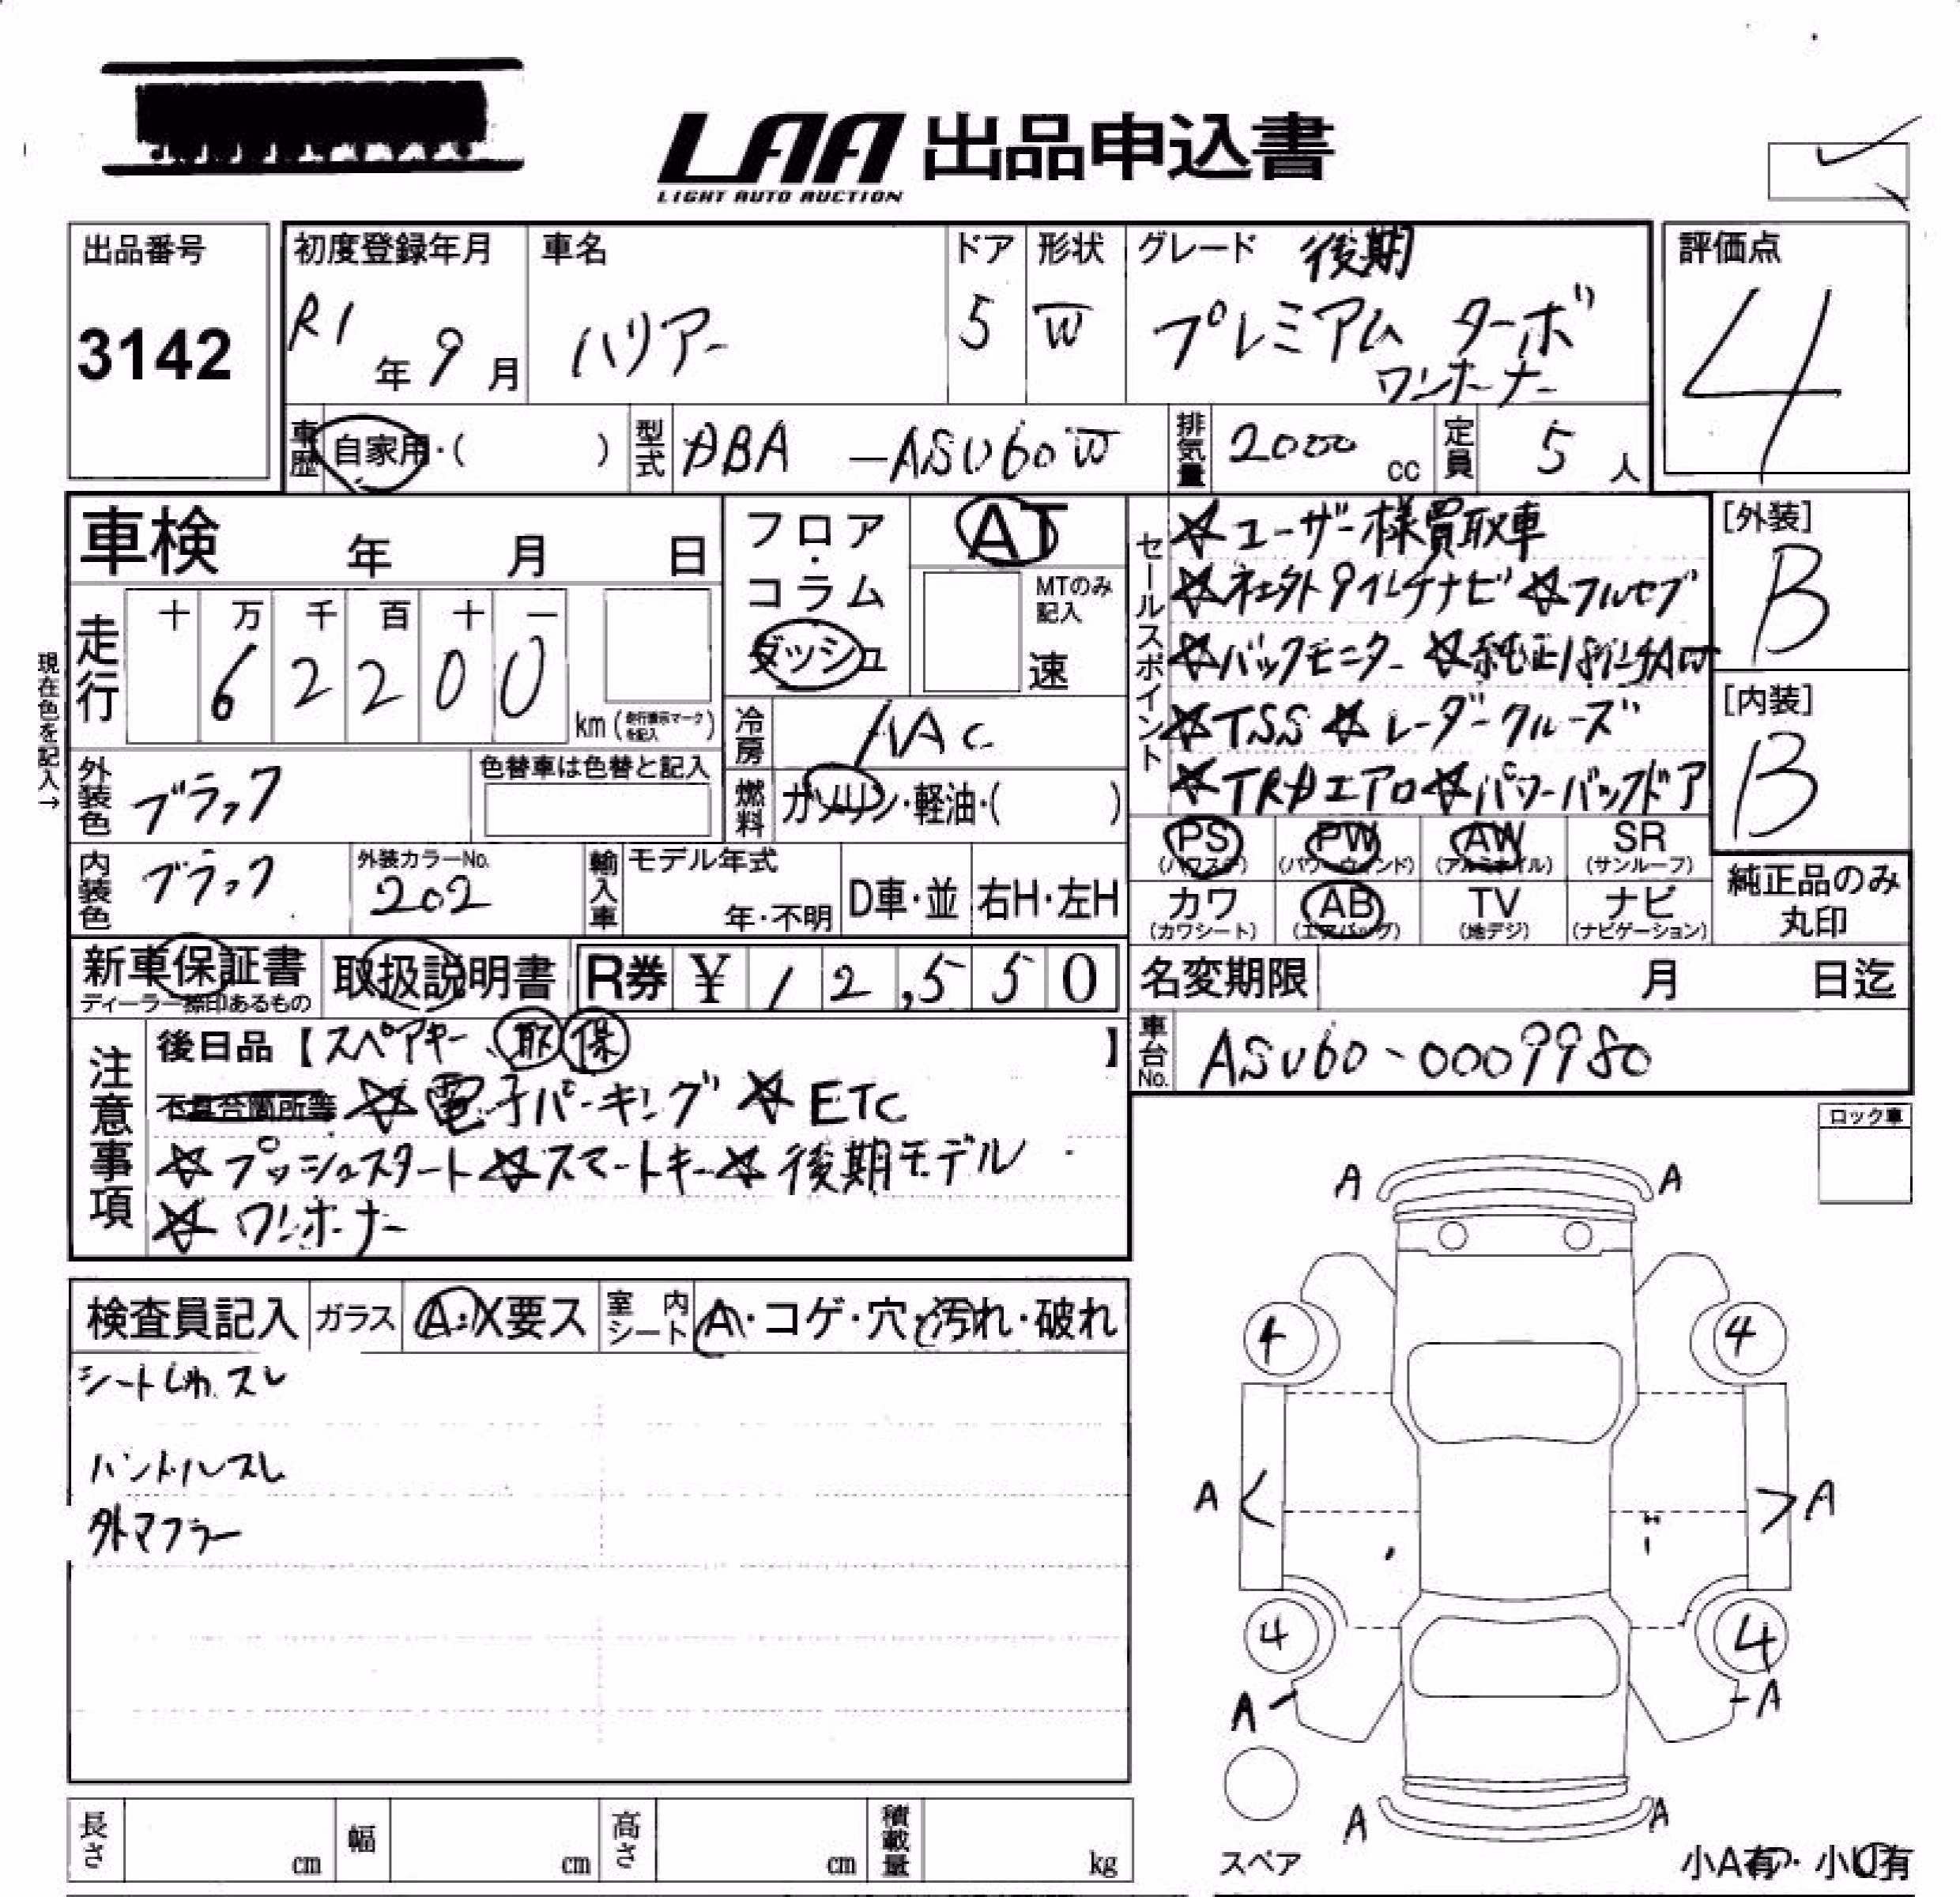 LAA 出品申込書
LIGHT AUTO AUCTION
出品番号
3142
初度登録年月
R1年9月
車名
ハリアー
ドア
5
形状
W
グレード 後期
プレミアム ターボ
ワンオーナー
評価点
4
車歴 自家用・( )
型式 ABA-ASU60W
排気量 2000cc
定員 5人
車検 年 月 日
フロア・コラム
ダッシュ
AT
MTのみ記入
速
セールスポイント
☆ユーザー様買取車
☆社外9インチナビ ☆フルセグ
☆バックモニター ☆純正18インチAW
☆TSS ☆レーダークルーズ
☆TRDエアロ☆パワーバックドア
[外装]
B
[内装]
B
現在色を記入→
走行
十 万 千 百 十 一
6 2 2 0 0
km(走行表示マークを記入)
冷房 AAC
外装色 ブラック
色替車は色替と記入
燃料 ガソリン・軽油・( )
内装色 ブラック
外装カラーNo.
202
輸入車 モデル年式
年・不明
D車・並 右H・左H
PS PW AW SR
(パワステ) (パワーウィンド) (アルミホイル) (サンルーフ)
カワ AB TV ナビ
(カワシート) (エアバッグ) (地デジ) (ナビゲーション)
純正品のみ
丸印
新車保証書 取扱説明書 R券 ¥12,550
ディーラー捺印あるもの
名変期限 月 日迄
車台No. ASU60-0009980
注意事項
後日品【スペアキー、取 保】
不具合箇所等 ☆電子パーキング ☆ETC
☆プッシュスタート☆スマートキー☆後期モデル
☆ワンオーナー
ロック車
検査員記入 ガラス A・X要ス 室内シート A・コゲ・穴・汚れ・破れ
シートしわ、スレ
ハンドルスレ
外マフラー
A A
4 4
A A
4 4
A A
A A
スペア
小A有・小U有
長さ cm 幅 cm 高さ cm 積載量 kg